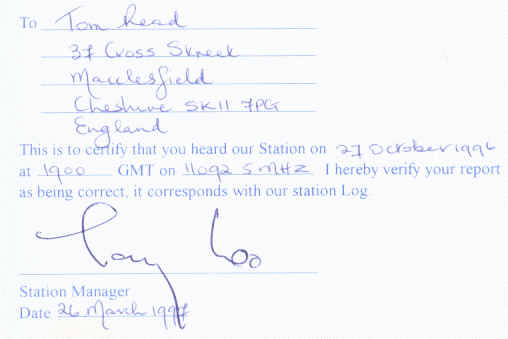 To Tom Read
37 Cross Street
Macclesfield
Cheshire SK11 7PG
England
This is to certify that you heard our Station on 27 October 1996
at 1900 GMT on 11092.5 MHZ I hereby verify your report
as being correct, it corresponds with our station Log
Tony
Station Manager
Date 26 March 1997